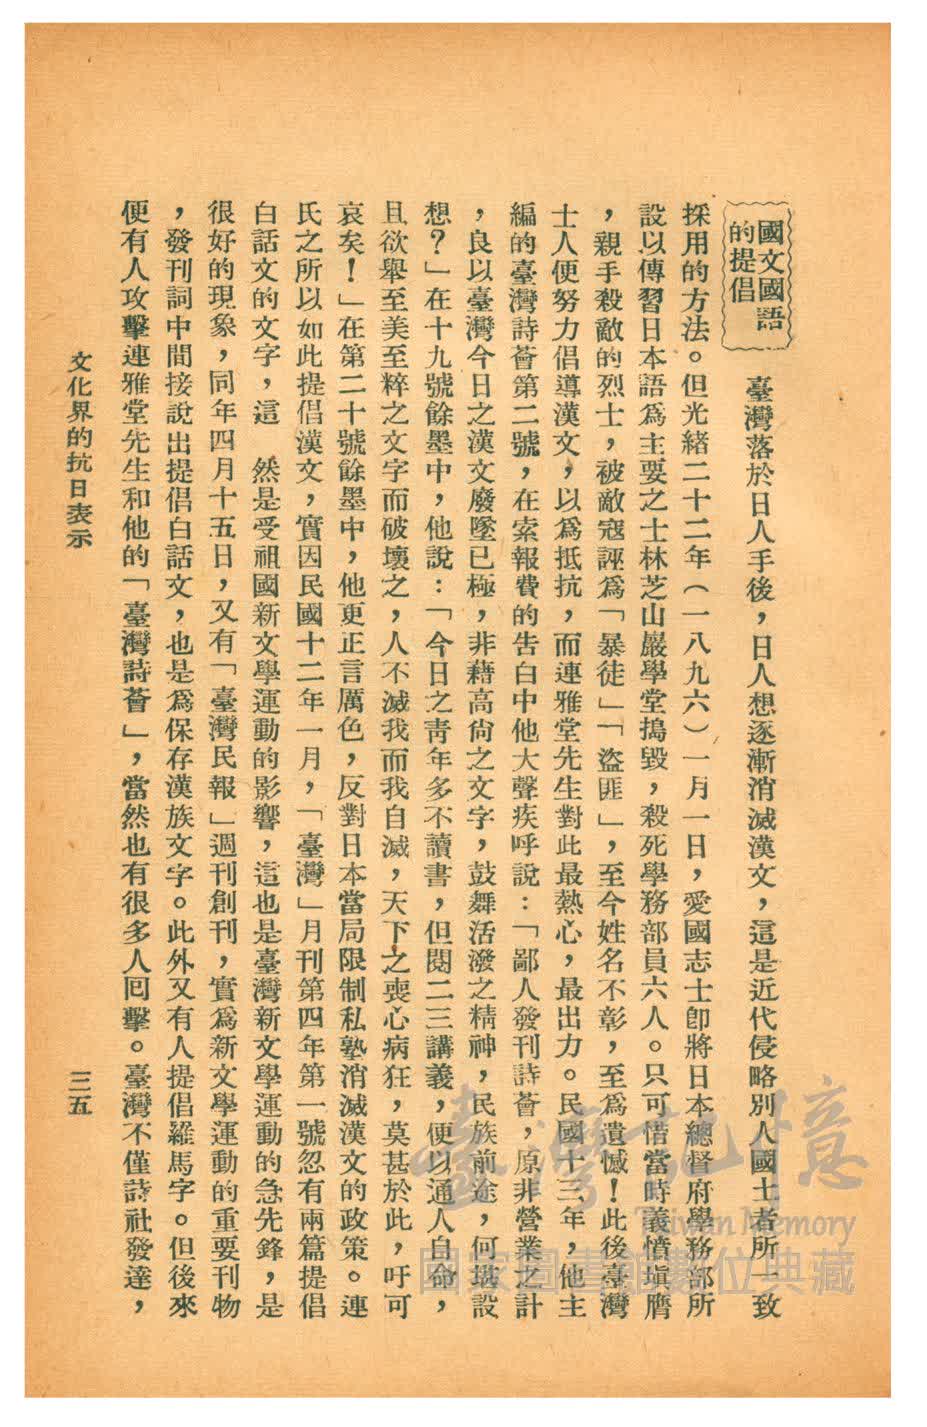 國文國語
的提倡
臺灣落於日人手後，日人想逐漸消滅漢文，這是近代侵略別人國土者所一致
採用的方法。但光緒二十二年（一八九六）一月一日，愛國志士卽將日本總督府學務部所
設以傳習日本語爲主要之士林芝山巖學堂搗毀，殺死學務部員六人。只可惜當時義憤塡膺
，親手殺敵的烈士，被敵寇誣爲「暴徒」「盜匪」，至今姓名不彰，至爲遺憾！此後臺灣
士人便努力倡導漢文，以爲抵抗，而連雅堂先生對此最熱心，最出力。民國十三年，他主
編的臺灣詩薈第二號，在索報費的告白中他大聲疾呼說：「鄙人發刊詩薈，原非營業之計
，良以臺灣今日之漢文廢墜已極，非藉高尙之文字，鼓舞活潑之精神，民族前途，何堪設
想？」在十九號餘墨中，他說：「今日之靑年多不讀書，但閱二三講義，便以通人自命，
且欲舉至美至粹之文字而破壞之，人不滅我而我自滅，天下之喪心病狂，莫甚於此，吁可
哀矣！」在第二十號餘墨中，他更正言厲色，反對日本當局限制私塾消滅漢文的政策。連
氏之所以如此提倡漢文，實因民國十二年一月，「臺灣」月刊第四年第一號忽有兩篇提倡
白話文的文字，這　然是受祖國新文學運動的影響，這也是臺灣新文學運動的急先鋒，是
很好的現象，同年四月十五日，又有「臺灣民報」週刊創刊，實爲新文學運動的重要刊物
，發刊詞中間接說出提倡白話文，也是爲保存漢族文字。此外又有人提倡羅馬字。但後來
便有人攻擊連雅堂先生和他的「臺灣詩薈」，當然也有很多人囘擊。臺灣不僅詩社發達，
文化界的抗日表示
三五
臺灣記憶
Taiwan Memory
國家圖書館數位典藏